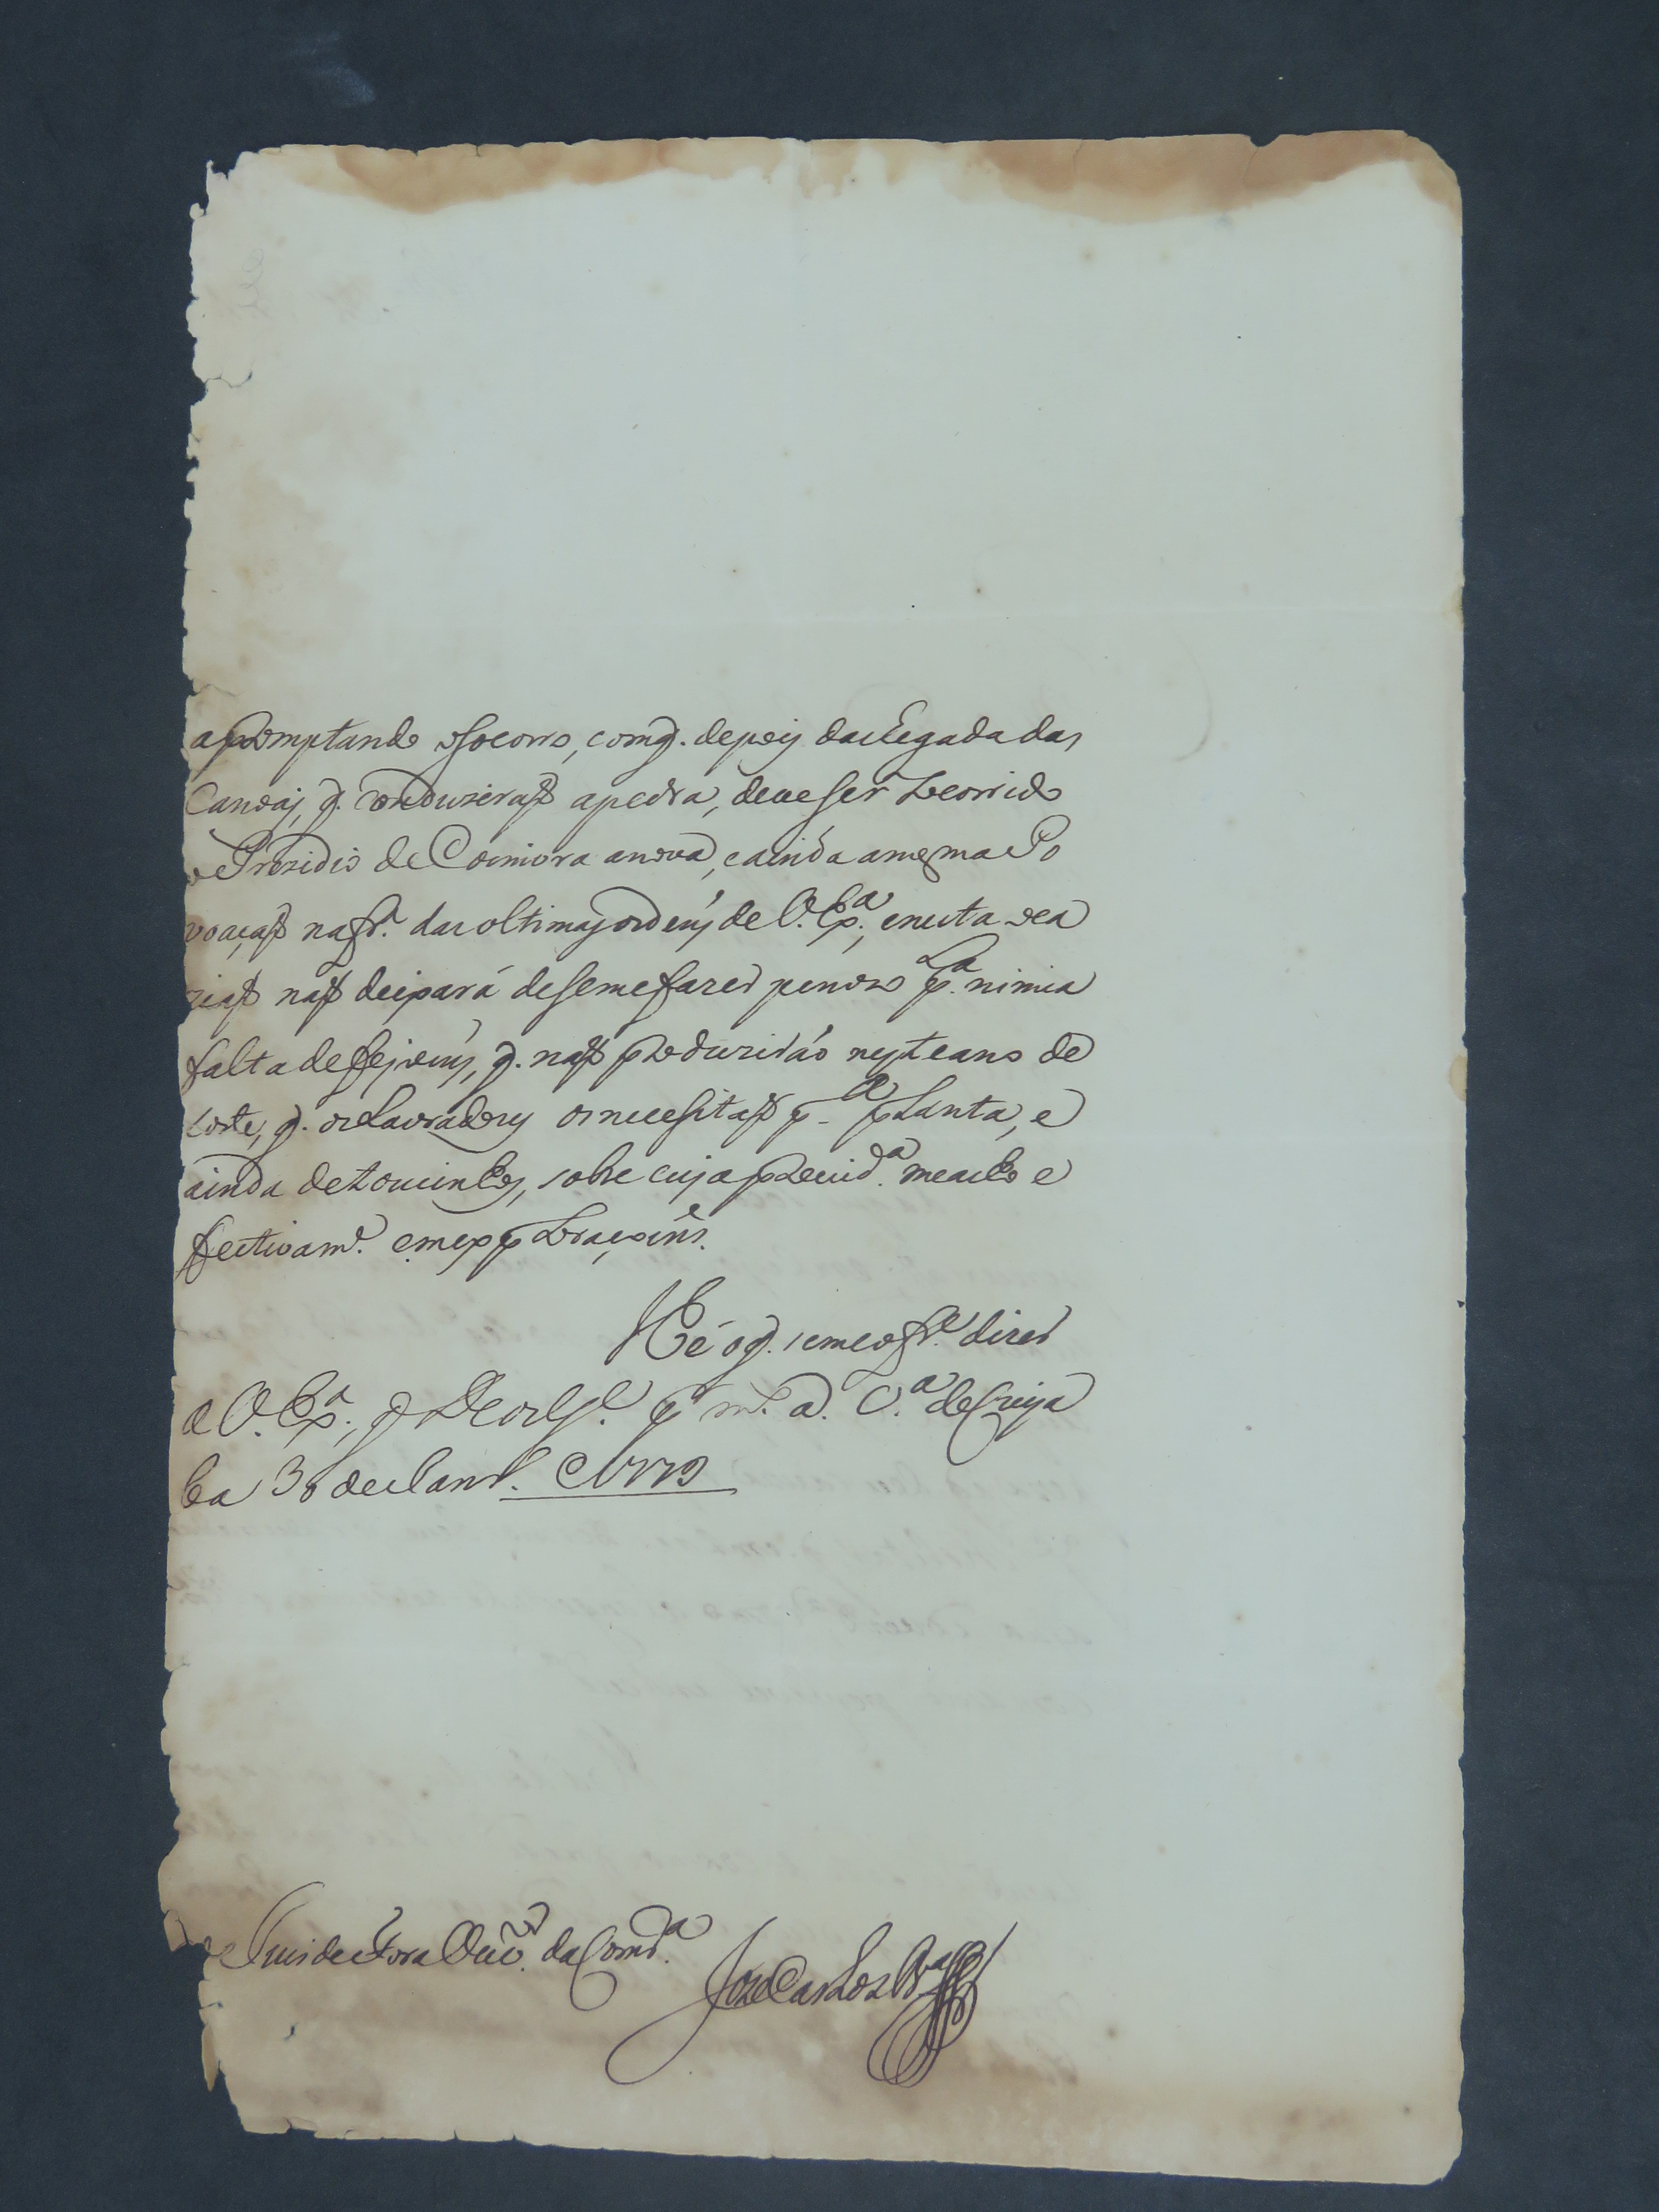 apromptando o socorro, com q. depois da xegada das
Canoas, q. conduziraõ a pedra, deve ser socorrido
o Prezidio de Coimbra a nova, e ainda a mesma Po
voaçaõ na fr.ª das oltimas ordens de V. Ex.ª, e nesta
naõ deixará de se me fazer penozo p.ª nimia
falta de feijoens, q. naõ produziráo neste anno de
sorte, q. os Lavradores os necessitaõ p.ª planta, e
ainda de toucinhos, sobre cuja provid.ª me acho e
fectivam.e em expp
Hé o q. se me ofr.e dizer
a V. Ex.ª, q D.s g.e p.r m.s a. V.ª do Cuya
ba 30 de Janr.o 1779
o Juis de Fora Ouv.or da Com.ca
Joze Carlos Pr.ª